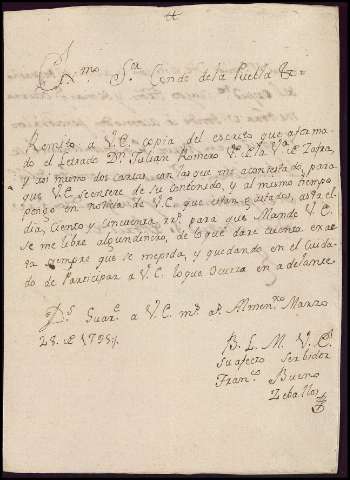 Exmo Sr Conde de la Puebla &
Remito a V.E. copia del escrito que a forma
do el Letrado Dn. Julian Romero Vo. de la Va. de Zafra,
y asi mismo dos cartas con las que me acontestado, para
que V.E. se entere de su Contenido, y al mismo tiempo
pongo en noticia de V.E. que estan gastados, asta el
dia, Ciento y Cinquenta rrs. para que Mande V.E.
se me libre algun dinero, de lo que dare cuenta exac
ta siempre que se me pida, y quedando en el Cuida
do de Participar a V.E. lo que Ocurra en adelante.
Ds. Guare. a V.E. ms. as. Almendro. Marzo
28. de
B. L. M. V. E.
Su afecto Serbidor
Franco. Bueno
Zeballos